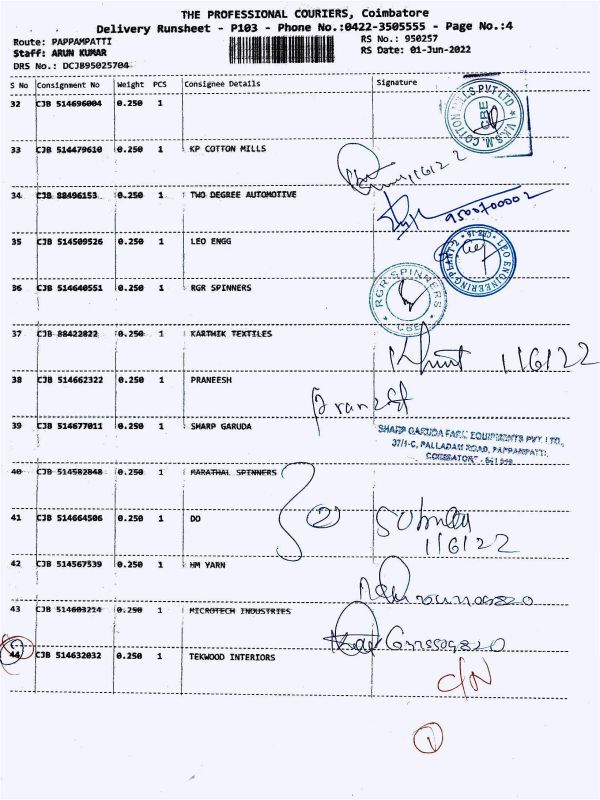 THE PROFESSIONAL COURIERS, Coimbatore
Delivery Runsheet - P103 - Phone No.:0422-3505555 - Page No.:4
Route: PAPPAMPATTI
RS No.: 950257
Staff: ARUN KUMAR
RS Date: 01-Jun-2022
DRS No.: DCJB95025704
S No Consignment No Weight PCS Consignee Details Signature
32 CJB 514696004 0.250 1
V.K.S.M. COTTON MILLS PVT LTD CBE
33 CJB 514479610 0.250 1 KP COTTON MILLS
34 CJB 88496153 0.250 1 TWO DEGREE AUTOMOTIVE
9500700002
35 CJB 514509526 0.250 1 LEO ENGG
LEO ENGINEERING PLANT-2
36 CJB 514640551 0.250 1 RGR SPINNERS
RGR SPINNERS CBE
37 CJB 88422822 0.250 1 KARTHIK TEXTILES
1/6/22
38 CJB 514662322 0.250 1 PRANEESH
39 CJB 514677011 0.250 1 SHARP GARUDA
SHARP GARUDA FARM EQUIPMENTS PVT. LTD.,
37/1-C, PALLADAM ROAD, PAPPAMPATTI,
COIMBATORE
40 CJB 514582848 0.250 1 MARATHAL SPINNERS
41 CJB 514664506 0.250 1 DO
2
1/6/22
42 CJB 514567539 0.250 1 HM YARN
43 CJB 514603214 0.250 1 MICROTECH INDUSTRIES
44 CJB 514632032 0.250 1 TEKWOOD INTERIORS
C/N
1